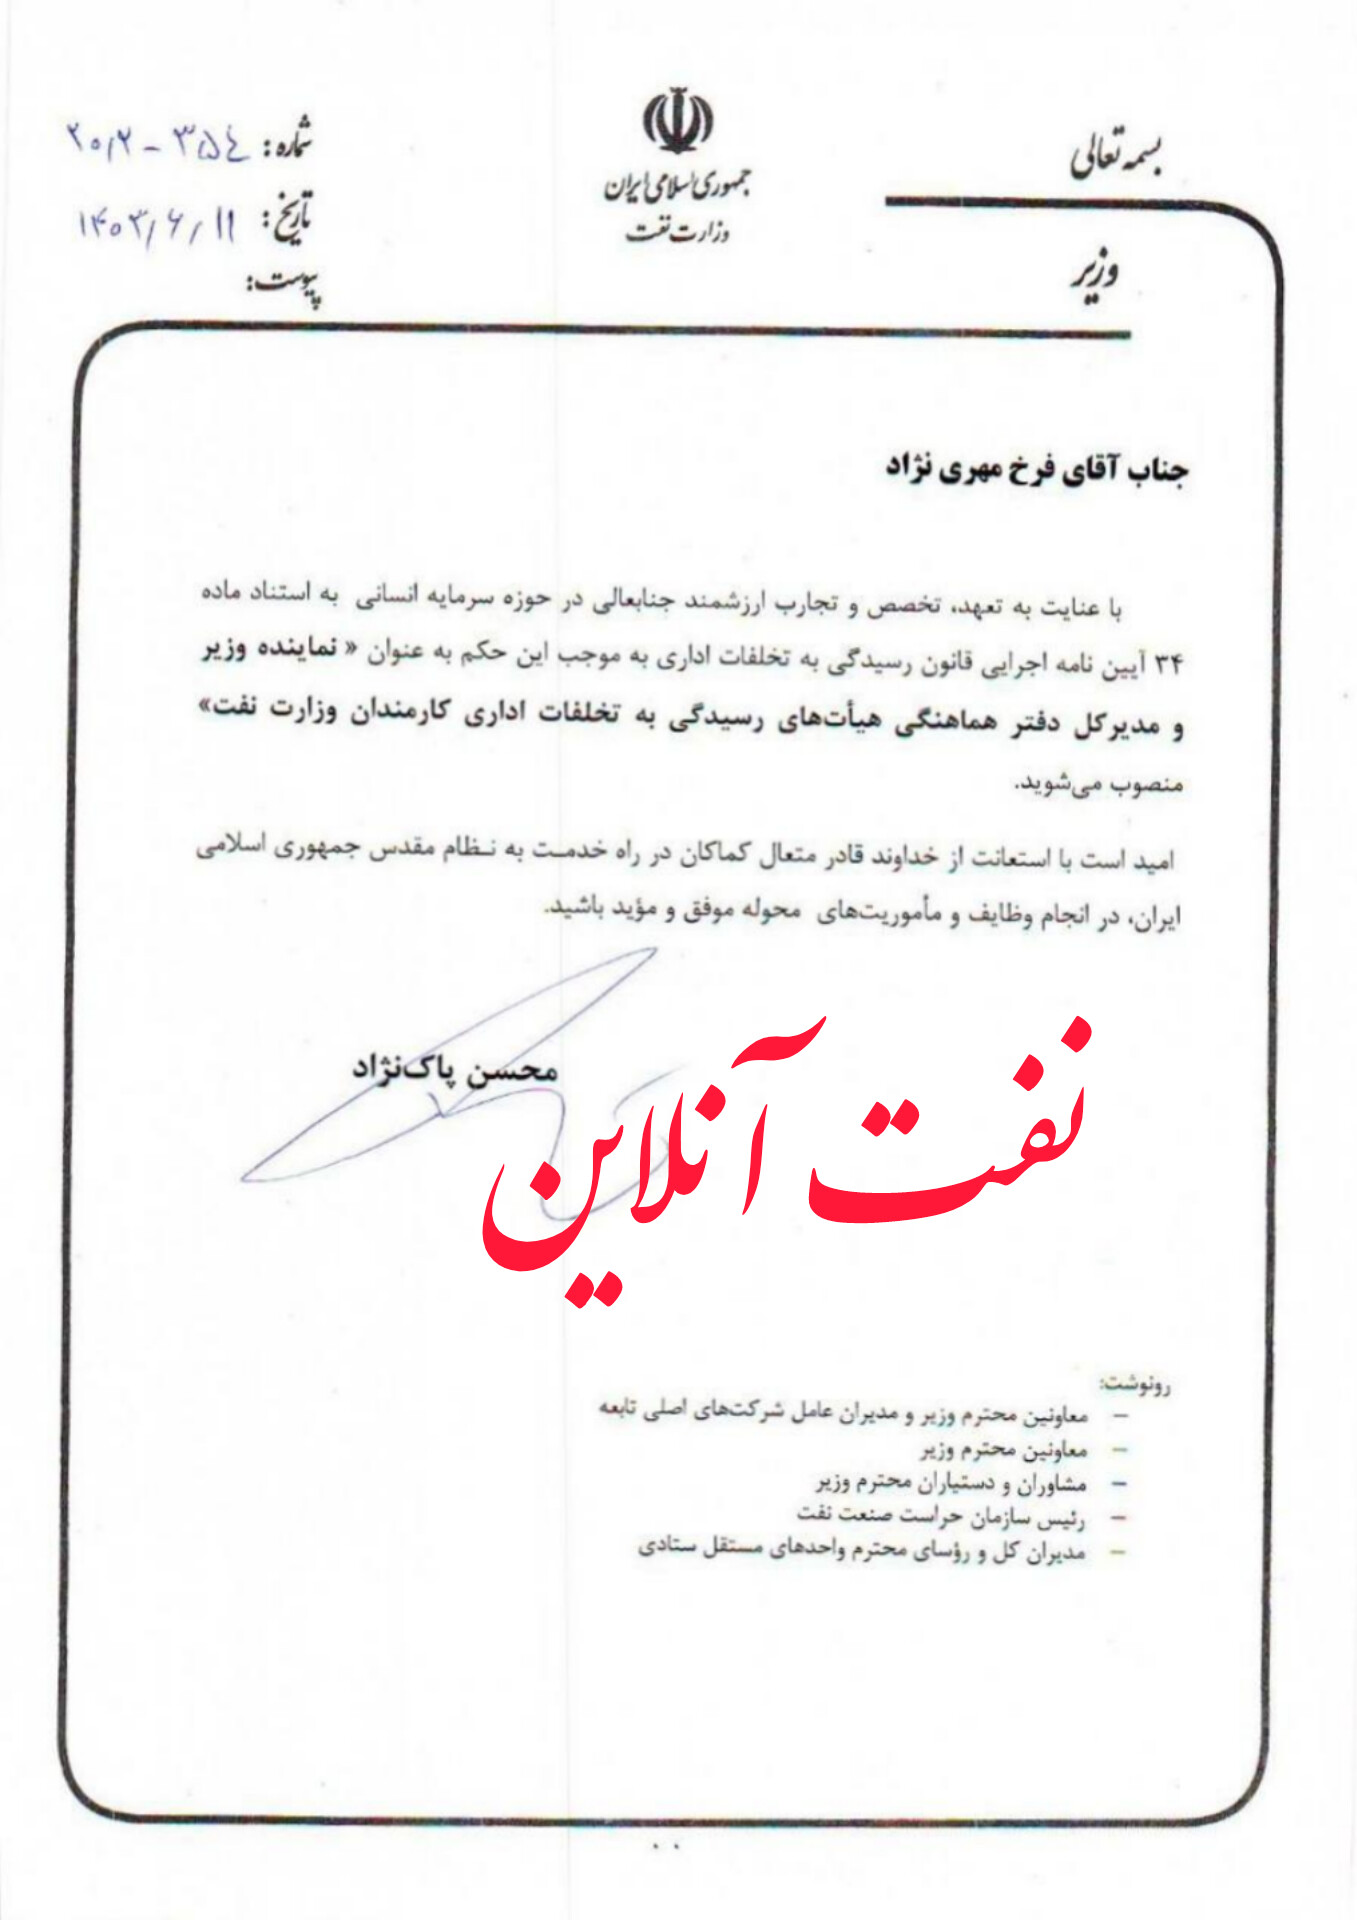 بسمه تعالی
جمهوری اسلامی ایران
وزارت نفت
وزیر
شماره: ۲۰/۲ - ۳۵٤
تاریخ: ۱۴۰۳/۶/۱۱
پیوست:
جناب آقای فرخ مهری نژاد
با عنایت به تعهد، تخصص و تجارب ارزشمند جنابعالی در حوزه سرمایه انسانی به استناد ماده
۳۴ آیین نامه اجرایی قانون رسیدگی به تخلفات اداری به موجب این حکم به عنوان « نماینده وزیر
و مدیرکل دفتر هماهنگی هیأت‌های رسیدگی به تخلفات اداری کارمندان وزارت نفت»
منصوب می‌شوید.
امید است با استعانت از خداوند قادر متعال کماکان در راه خدمت به نظام مقدس جمهوری اسلامی
ایران، در انجام وظایف و مأموریت‌های محوله موفق و مؤید باشید.
محسن پاک‌نژاد
نفت آنلاین
رونوشت:
– معاونین محترم وزیر و مدیران عامل شرکت‌های اصلی تابعه
– معاونین محترم وزیر
– مشاوران و دستیاران محترم وزیر
– رئیس سازمان حراست صنعت نفت
– مدیران کل و رؤسای محترم واحدهای مستقل ستادی